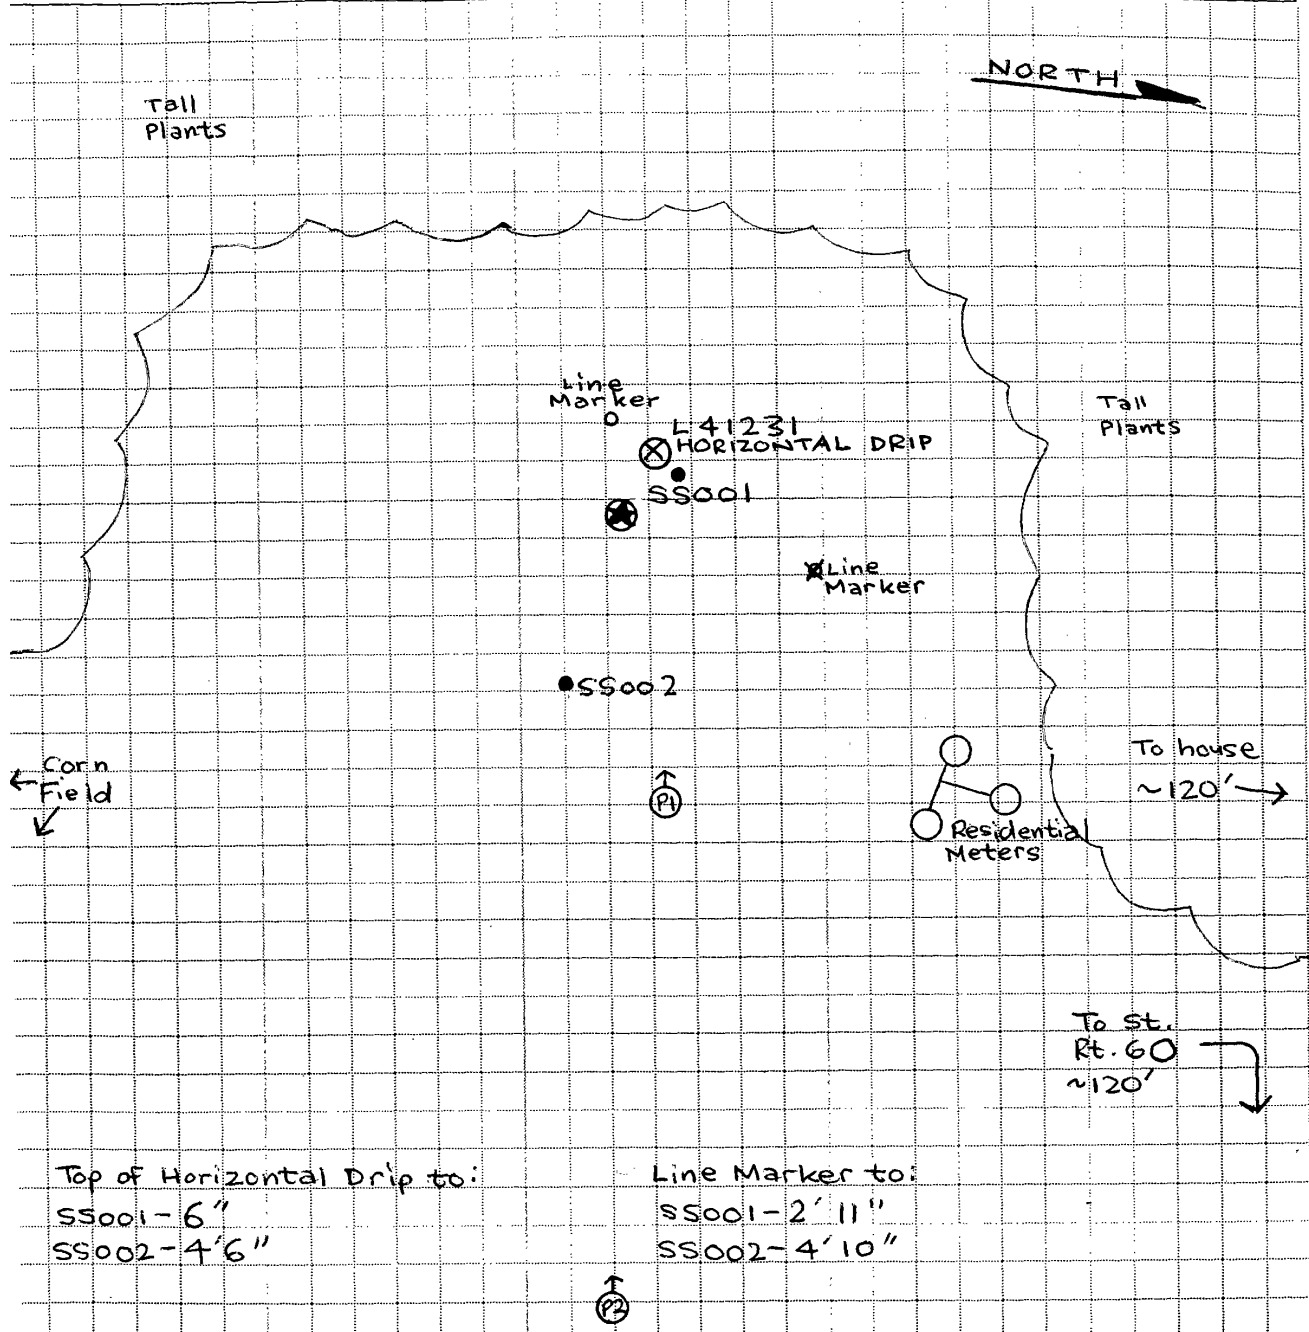 NORTH
Tall
Plants
Line
Marker
L 41231
HORIZONTAL DRIP
SS001
Tall
Plants
Line
Marker
SS002
Corn
Field
P1
To house
~120'
Residential
Meters
To St.
Rt. 60
~120'
Top of Horizontal Drip to:
SS001-6"
SS002-4'6"
Line Marker to:
SS001-2'11"
SS002-4'10"
P2